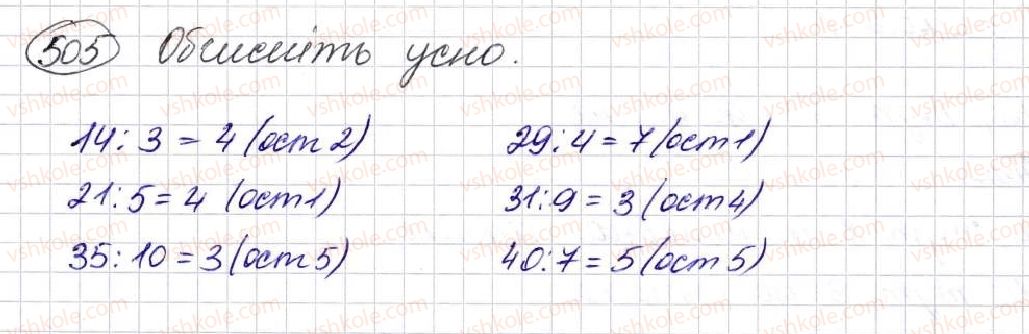 505 Обчисліть усно.
14 : 3 = 4 (ост 2)
29 : 4 = 7 (ост 1)
21 : 5 = 4 (ост 1)
31 : 9 = 3 (ост 4)
35 : 10 = 3 (ост 5)
40 : 7 = 5 (ост 5)
vshkole.com